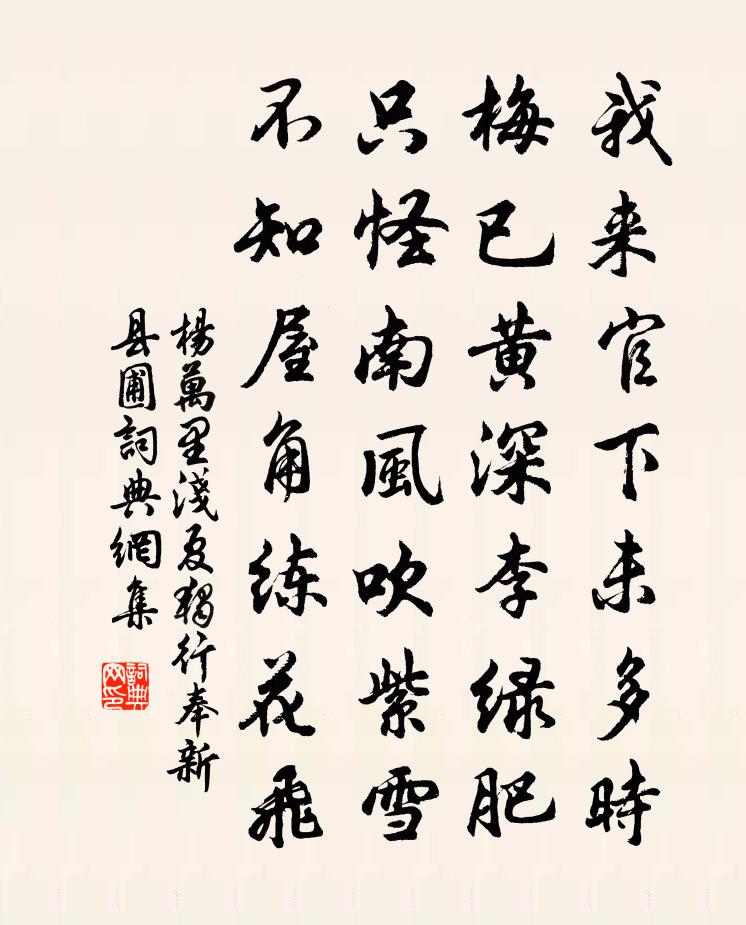 我来官下未多時
梅已黄深李緑肥
只怪南風吹紫雪
不知屋角练花飛
楊萬里淺夏獨行奉新
县圃詞典網集
詞典
网印